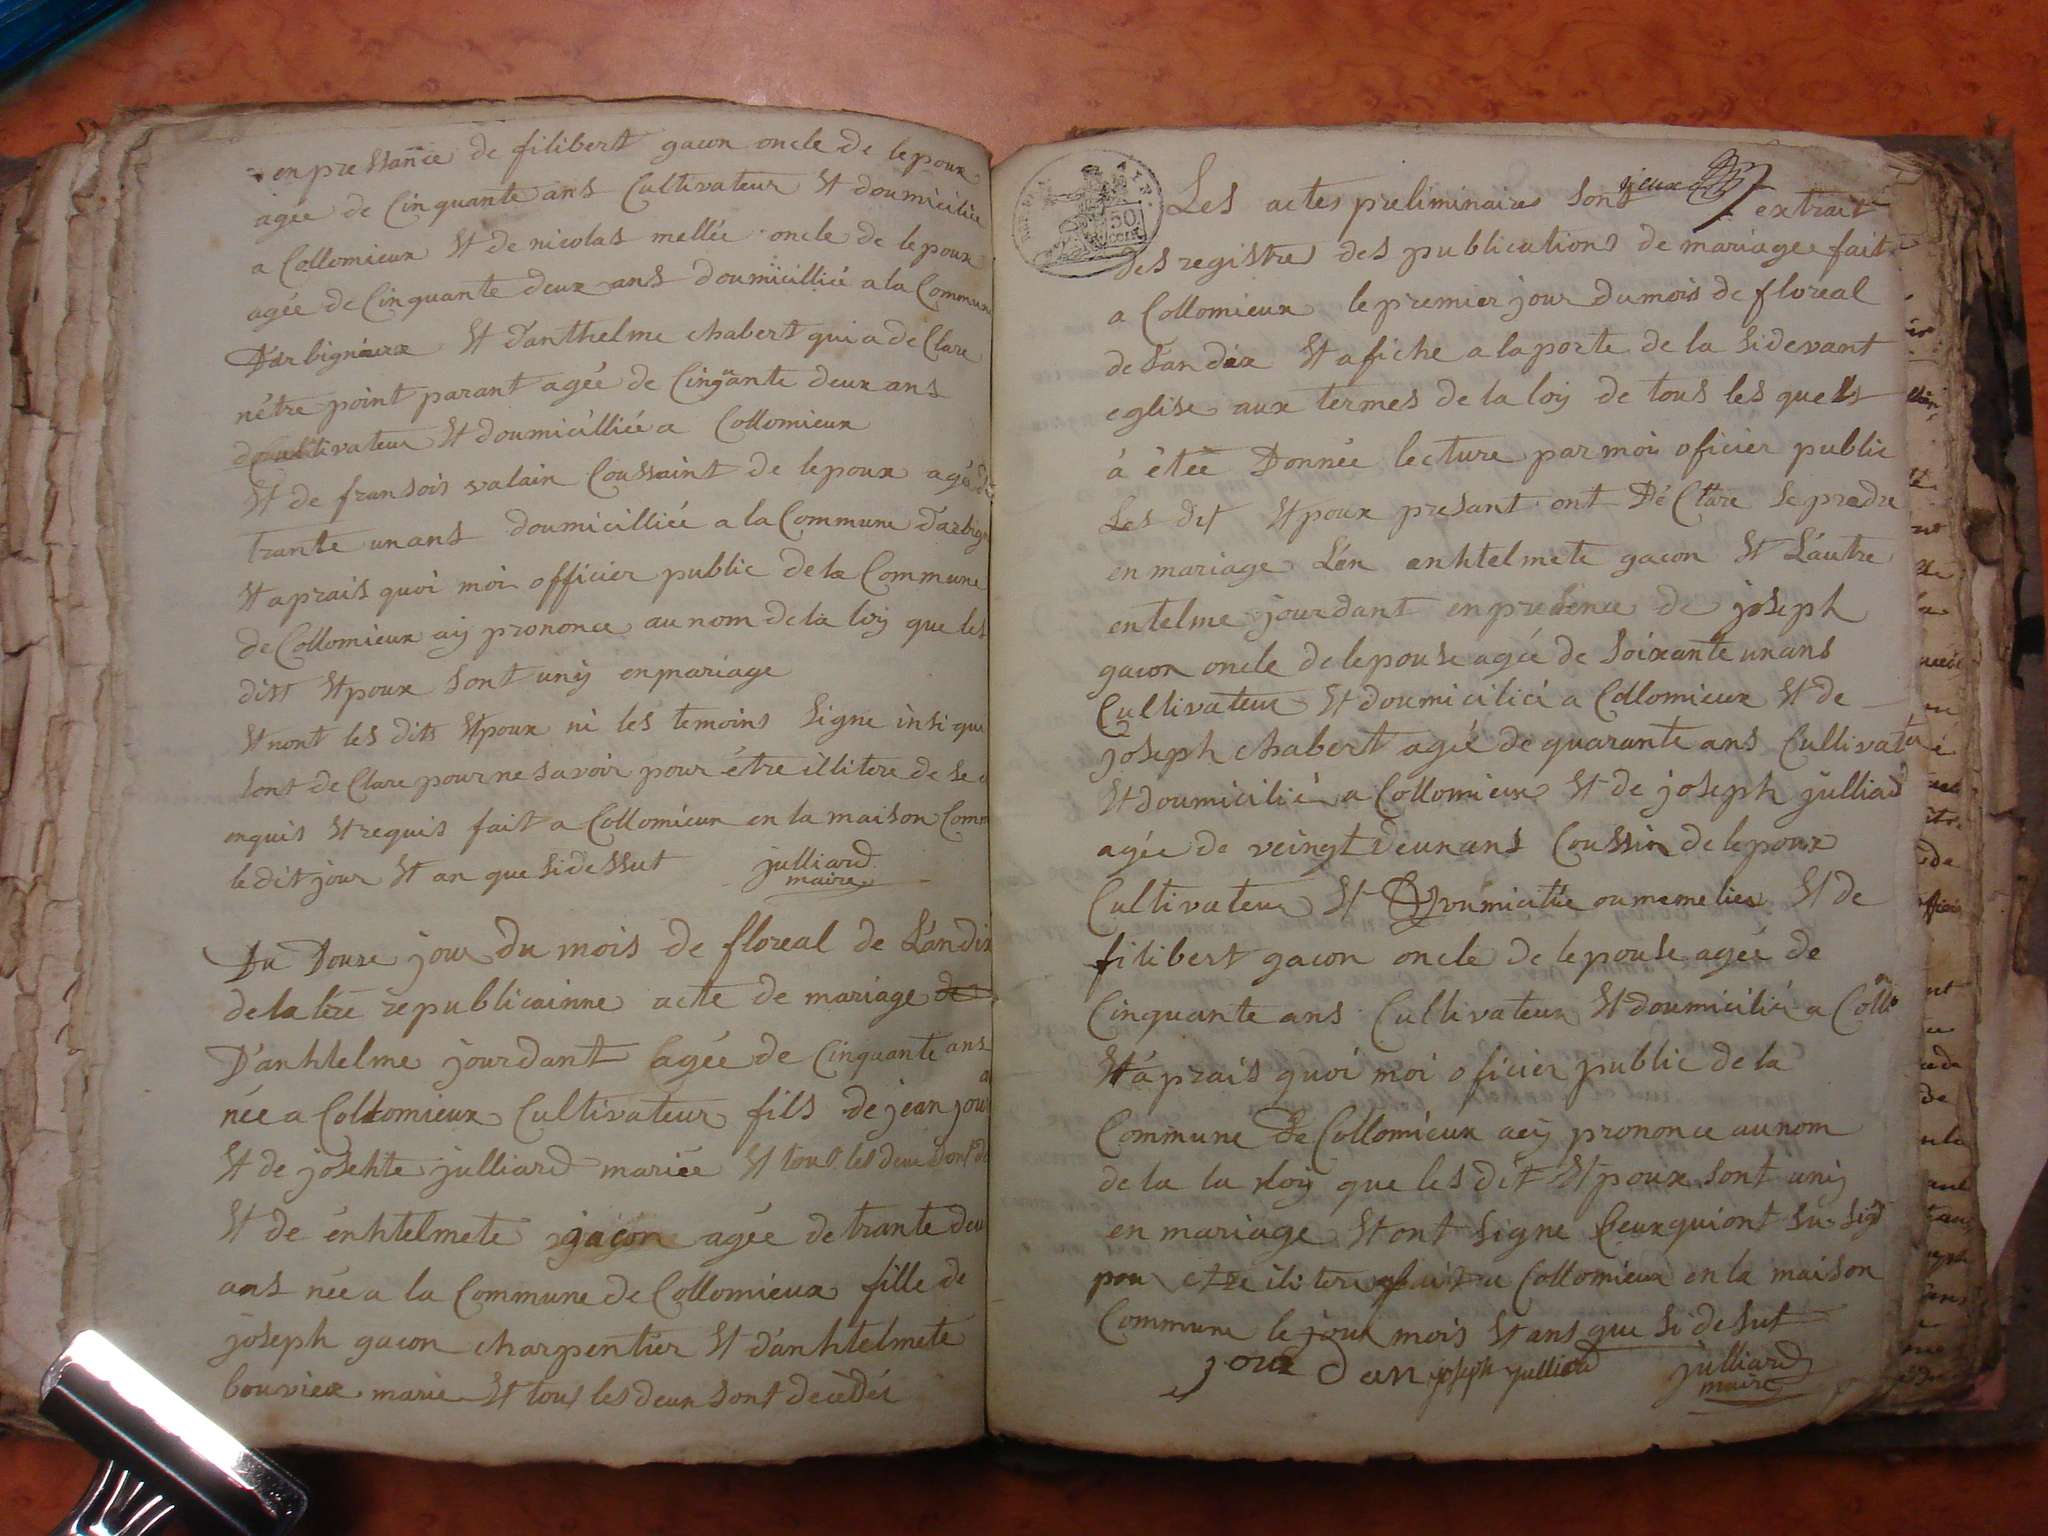 en pressance de filibert gacon oncle de lepoux
agée de Cinquante ans Cultivateur Et doumicilié
a Collomieux Et de nicolas mellée oncle de lepoux
agée de Cinquante deux ans doumicillié a la Commune
D'arbignieux Et d'anthelme chabert qui a de Clare
n'étre point parant agée de Cinquante deux ans
Cultivateur Et doumicilliée a Collomieux
Et de fransois valain Coussaint de lepoux agé de
trante un ans doumicilliée a la Commune d'arbign
Et aprais quoi moi officier public de la Commune
de Collomieux aij prononce au nom de la loij que les
ditt Etpoux sont unij en mariage
Et nont les dits Etpoux ni les temoins signe insi que
lont de Clare pour ne savoir pour étre illitere de se
enquis Et requis fait a Collomieux en la maison Comm
le dit jour Et an que si dessut julliard
maire
Du Douze jour du mois de floreal de L'an dix
de la lere republicainne acte de mariage de
D'anhtelme jourdant agée de Cinquante ans
née a Collomieux Cultivateur fils de jean jour
Et de josehte julliard mariée Et tous les deux sont de
Et de énhtelmete gacon agée de trante deu
ans née a la Commune de Collomieux fille de
joseph gacon charpentier Et d'anhtelmete
bouvier marie Et tous les deux sont decédés
Les actes preliminaire sont extrait
des registre des publications de mariagee fait
a Collomieux le premier jour du mois de floreal
de L'an dix Et afiche a la porte de la sidevant
eglise aux termes de la loij de tous les quells
à étée Donnée lecture par moi oficier public
Les dit Etpoux presant ont Dé Clare se predre
en mariage L'én enhtelmete gacon Et L'autre
entelme jourdant en presence de joseph
gacon oncle de lepouse agée de soixante un ans
Cultivateur Et doumicilié a Collomieux Et de
joseph chabert agée de quarante ans Cultivateur
Et doumicilié a Collomieux Et de joseph julliard
agée de veingt deun ans Coussin de lepoux
Cultivateur Et Doumicilie ou meme lieu Et de
filibert gacon oncle de lepouse agée de
Cinquante ans Cultivateur Et doumicilié a Collo
Et aprais quoi moi oficier public de la
Commune de Collomieux aeij prononce au nom
de la la loij que les dit Etpoux sont unij
en mariage Et ont signe Ceux qui ont su sig
pou etre ilitere fait a Collomieux en la maison
Commune le jour mois Et ans que si desut
jourdan joseph julliard julliard
maire